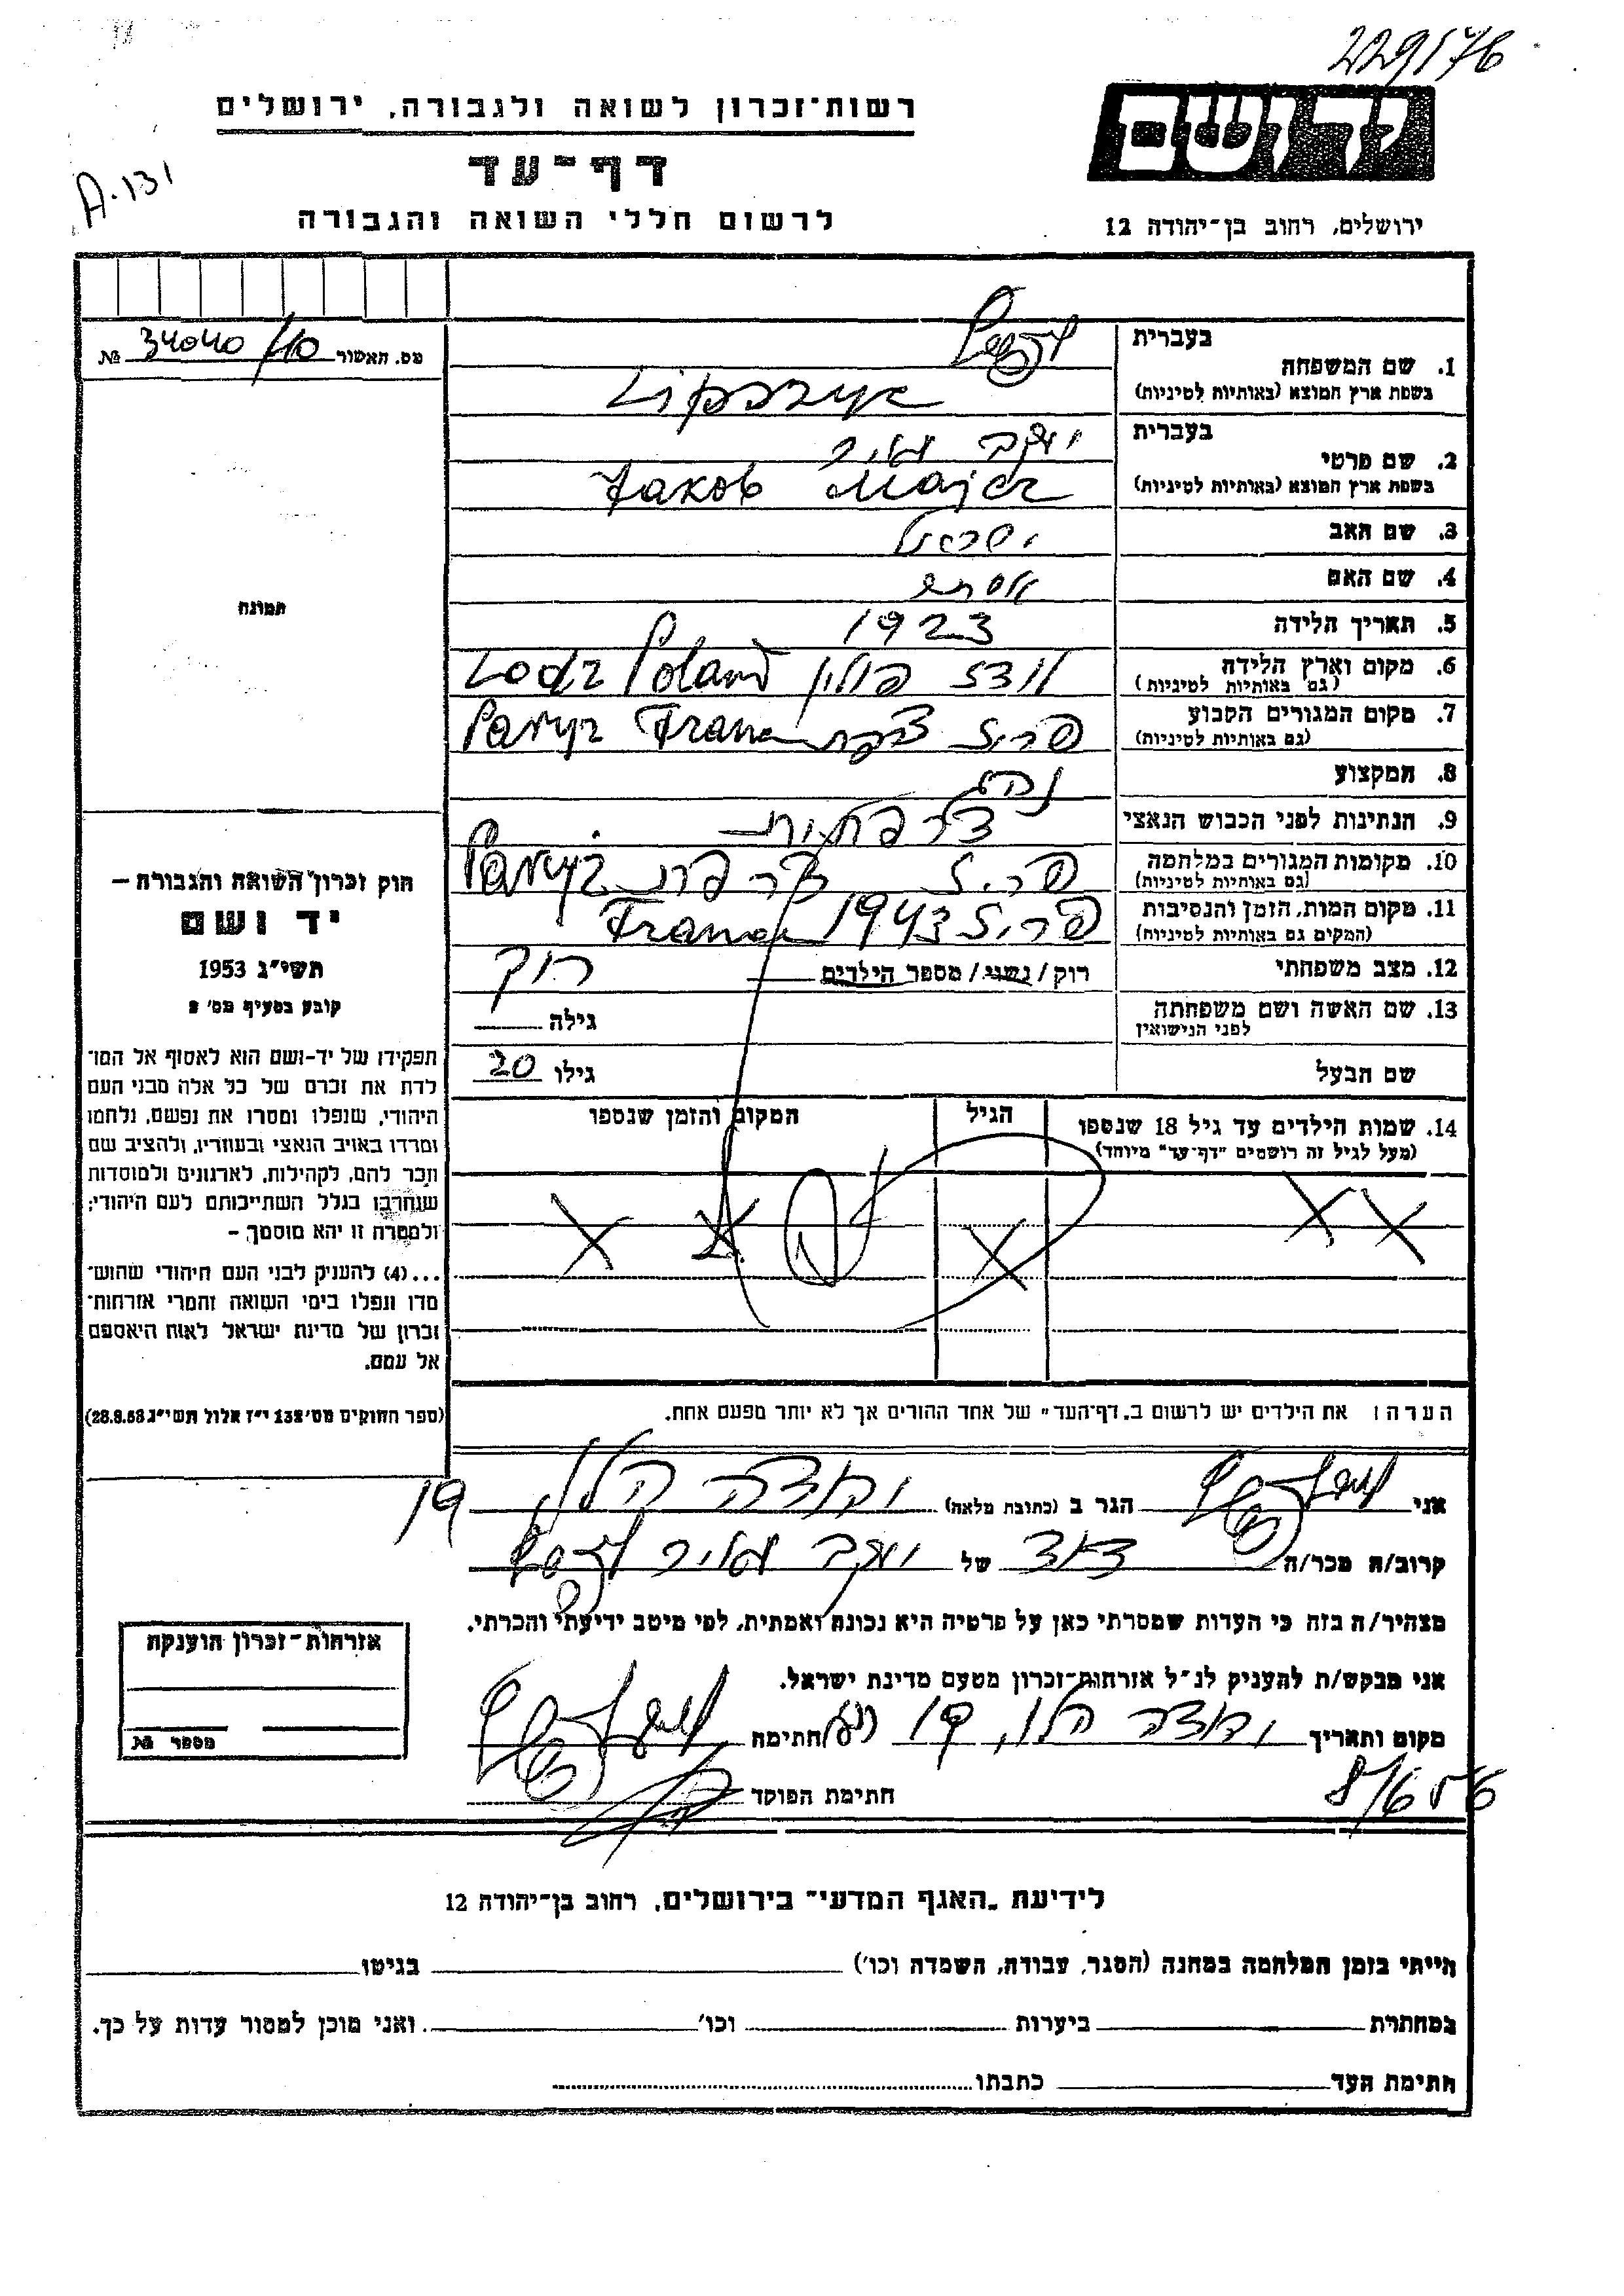 229176
רשות־זכרון לשואה ולגבורה, ירושלים
יד ושם
A-131
דף־עד
לרשום חללי השואה והגבורה
ירושלים, רחוב בן־יהודה 12
מס. האשור 34040/40 №
בעברית
1. שם המשפחה
בשפת ארץ המוצא (באותיות לטיניות)
בעברית יעקב מאיר
2. שם פרטי
בשפת ארץ המוצא (באותיות לטיניות) Jakob Majer
3. שם האב ישראל
4. שם האם אסתר
5. תאריך הלידה 1923
6. מקום וארץ הלידה לודז פולין Lodz Poland
(גם באותיות לטיניות)
7. מקום המגורים הקבוע פריז צרפת Paryz
(גם באותיות לטיניות)
8. המקצוע
9. הנתינות לפני הכבוש הנאצי צרפתית
10. מקומות המגורים במלחמה פריז צרפת Paryz
(גם באותיות לטיניות)
11. מקום המות, הזמן והנסיבות פריז 1943
(המקום גם באותיות לטיניות)
12. מצב משפחתי רוק / נשוי / מספר הילדים רוק
13. שם האשה ושם משפחתה גילה
לפני הנישואין
שם הבעל גילו 20
14. שמות הילדים עד גיל 18 שנספו הגיל המקום והזמן שנספו
(מעל לגיל זה רושמים "דף־עד" מיוחד)
הערה: את הילדים יש לרשום ב"דף־העד" של אחד ההורים אך לא יותר מפעם אחת.
תמונה
חוק זכרון השואה והגבורה –
יד ושם
תשי"ג 1953
קובע בסעיף מס' 2
תפקידו של יד-ושם הוא לאסוף אל המו־
לדת את זכרם של כל אלה מבני העם
היהודי, שנפלו ומסרו את נפשם, נלחמו
ומרדו באויב הנאצי ובעוזריו, ולהציב שם
וזכר להם, לקהילות, לארגונים ולמוסדות
שנחרבו בגלל השתייכותם לעם היהודי;
ולמטרה זו יהא מוסמך –
...(4) להעניק לבני העם היהודי שהוש־
מדו ונפלו בימי השואה והמרי אזרחות־
זכרון של מדינת ישראל לאות היאספם
אל עמם.
(ספר החוקים מס' 132 י"ז אלול תשי"ג 28.8.53)
אני הגר ב (כתובת מלאה) 19
קרוב/ה מכר/ה של יעקב מאיר
מצהיר/ה בזה כי העדות שמסרתי כאן על פרטיה היא נכונה ואמתית, לפי מיטב ידיעתי והכרתי.
אני מבקש/ת להעניק לנ"ל אזרחות־זכרון מטעם מדינת ישראל.
מקום ותאריך חתימה
8/6 56
חתימת הפוקד
אזרחות־זכרון הוענקה
מספר №
לידיעת "האגף המדעי" בירושלים, רחוב בן־יהודה 12
הייתי בזמן המלחמה במחנה (הסגר, עבודה, השמדה וכו') בגיטו
במחתרת ביערות וכו' ואני מוכן למסור עדות על כך.
חתימת העד כתבתו